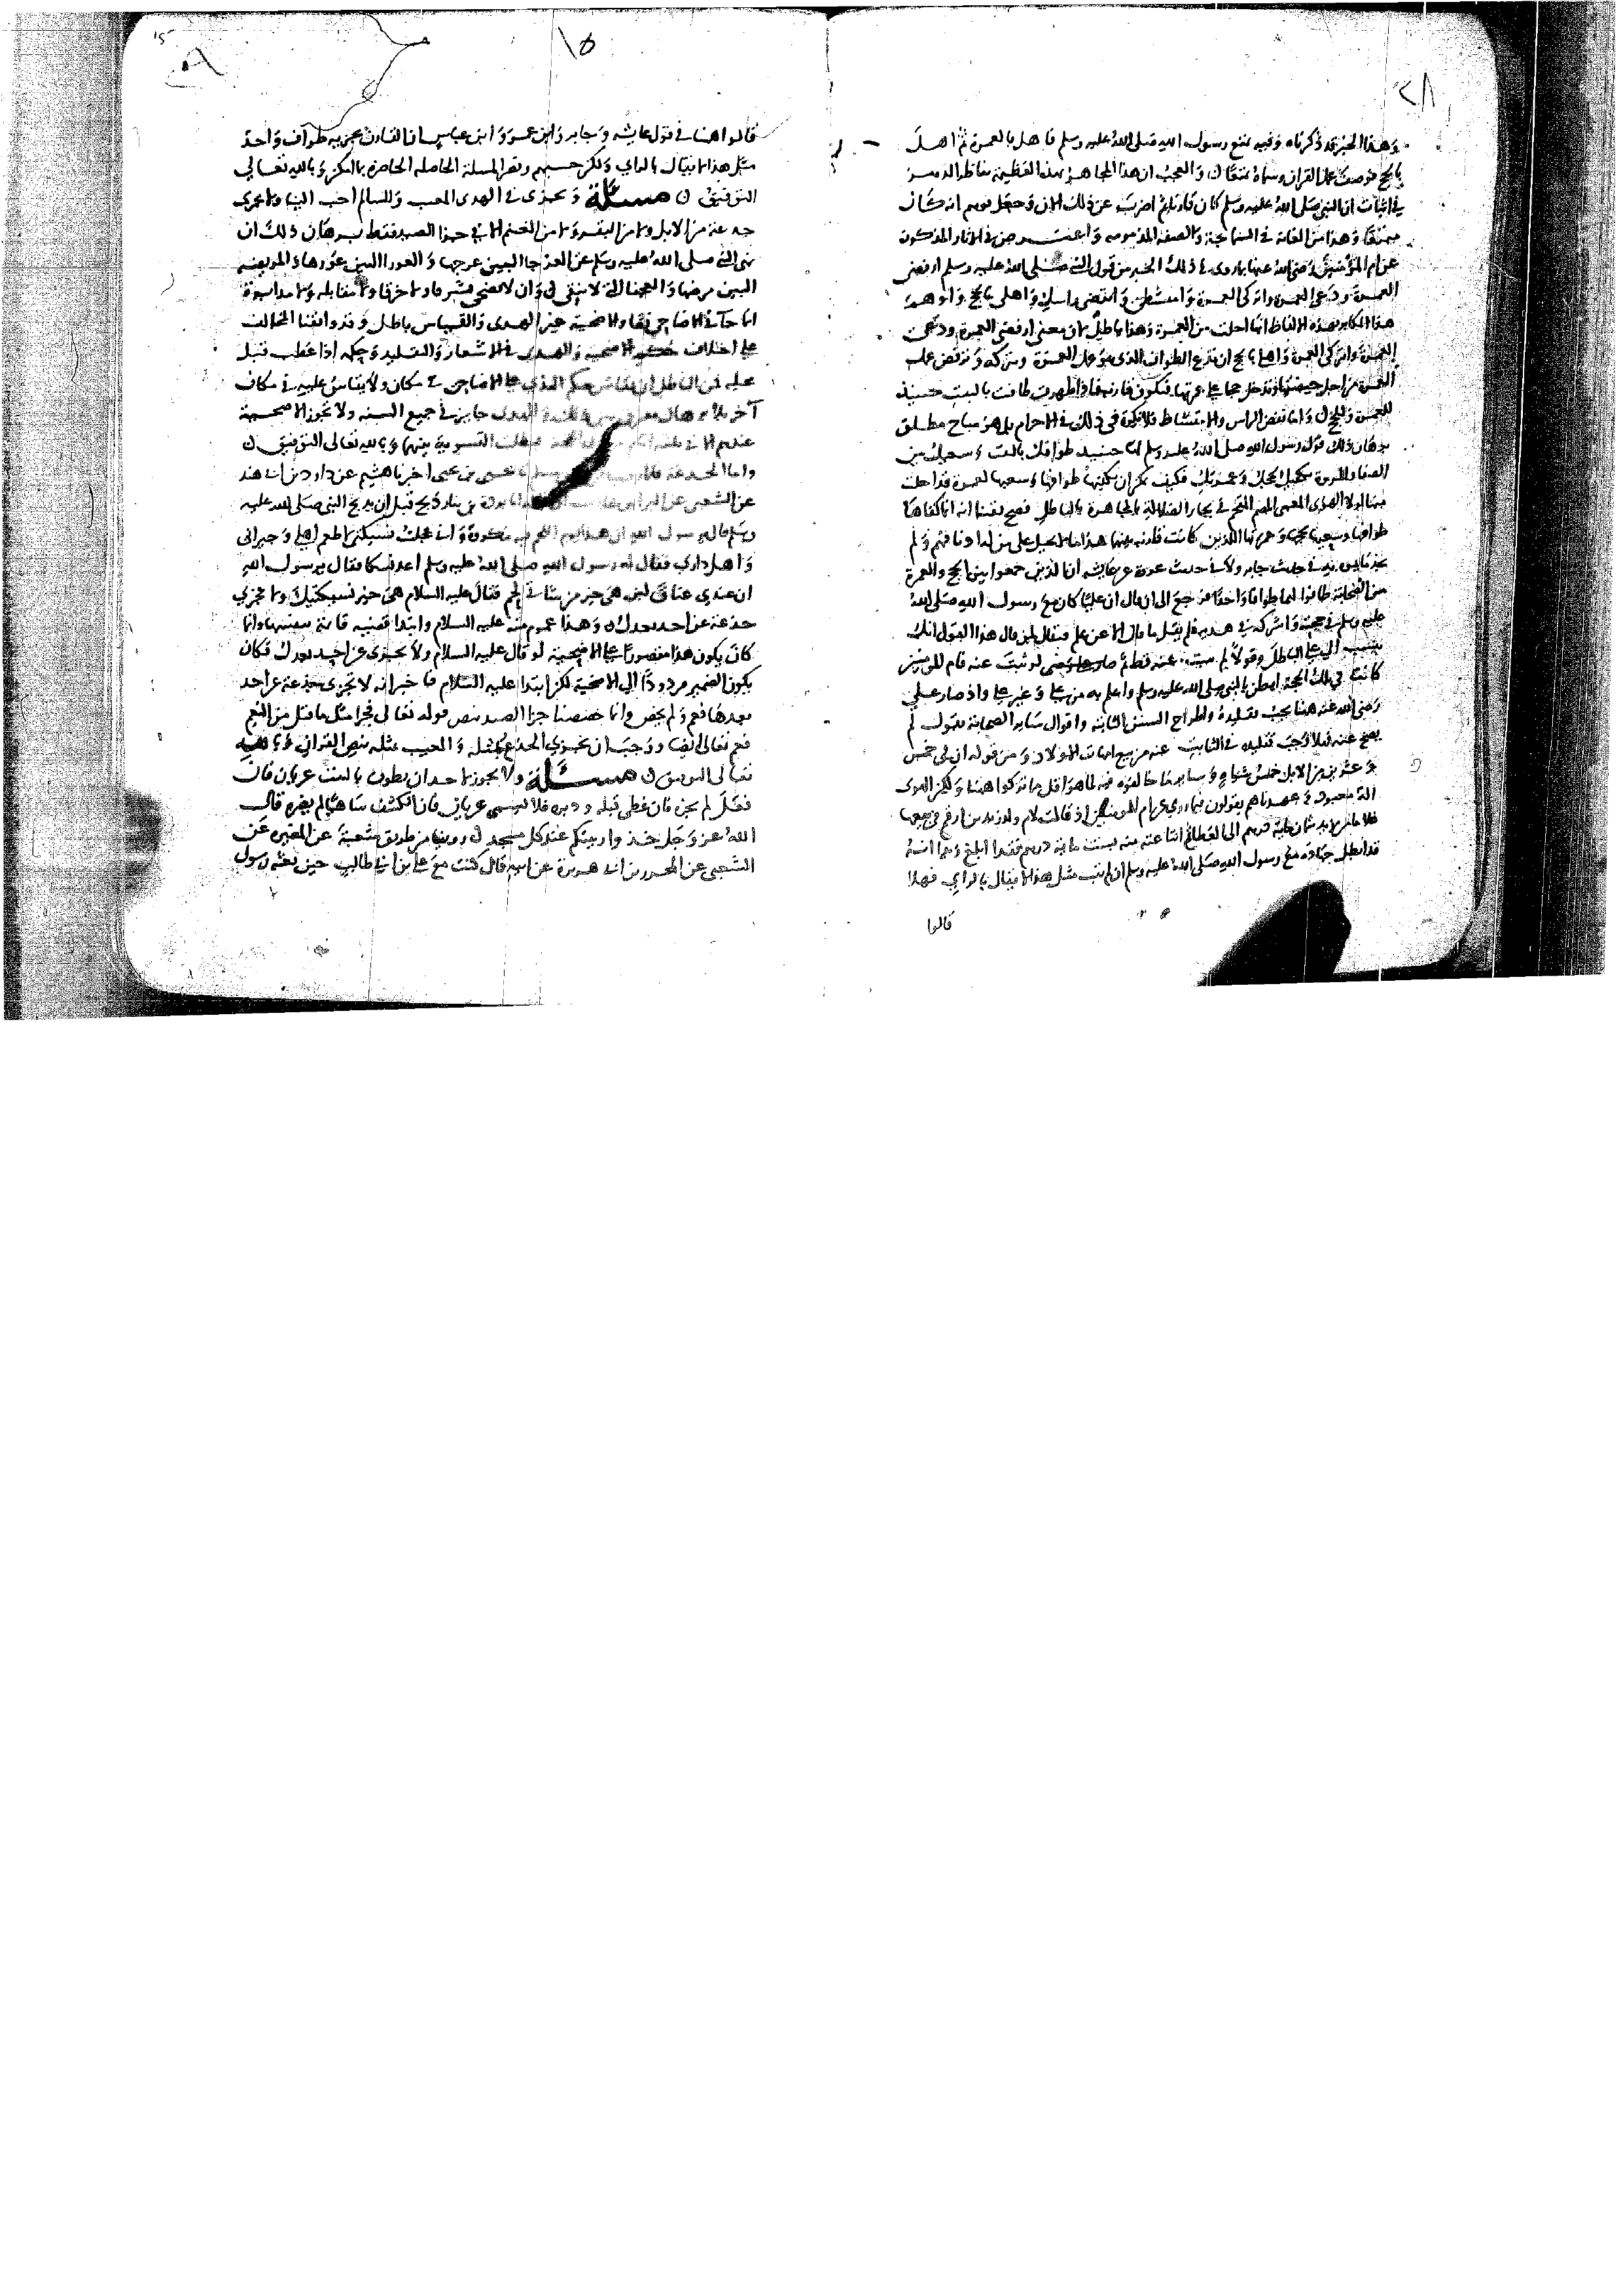 وهذا الخبر قد ذكرناه وفيه تمتع رسول الله صلى الله عليه وسلم فاهل بالعمرة ثم اهل
بالحج فوصف عمل القران وسماه تمتعا والعجب ان هذا المجاهر بهذه العظيمة
في اثبات ان النبي صلى الله عليه وسلم كان قارنا ثم اضرب عن ذلك الان وجعل يوهم انه كان
متمتعا وهذا من الغاية في السماجة والصفة المذمومة واعترض في الاثار المذكورة
عن ام المؤمنين رضي الله عنها بما روى في ذلك الخبر من قول النبي صلى الله عليه وسلم ارفضي
العمرة ودعي العمرة واتركي العمرة وامتشطي وانقضي راسك واهلي بالحج واوهم
هذا المكابر بهذه الالفاظ انها احلت من العمرة وهذا باطل لان معنى ارفضي العمرة ودعي
العمرة واتركي العمرة واهلي بالحج ان تدع الطواف الذي هو عمل العمرة وتتركه وترفض عمل
العمرة من اجل حيضتها وتدخل حجا على عمرتها فتكون قارنة فاذا طهرت طافت بالبيت حينئذ
للعمرة وللحج واما نقض الراس والامتشاط فلا يكره في ذلك في الاحرام بل هو مباح مطلق
برهان ذلك قول رسول الله صلى الله عليه وسلم لها حينئذ طوافك بالبيت وسعيك بين
الصفا والمروة يكفيك لحجك وعمرتك فكيف يمكن ان يكفيها طوافها وسعيها لعمرة قد احلت
منها لولا الهوى المعمي المصم المقحم في بحار الضلالة بالمجاهرة بالباطل فصح يقينا انه انما كفاها
طوافها وسعيها لحجها وعمرتها اللذين كانت قارنة بينهما هذا ما لا يحيل على من له ادنى فهم ولم
من الصحابة طافوا لهما طوافا واحدا ثم رجع الى ان قال ان عليا كان مع رسول الله صلى الله
عليه وسلم في حجته واشركه في هديه فلم يقل ما قال الا عن علم فيقال لمن قال هذا القول انك
كانت في تلك الحجة ابطن بالنبي صلى الله عليه وسلم واعلم به من علي وغير علي واذ صار علي
رضي الله عنه ههنا يجب تقليده واطراح السنن الثابتة واقوال سائر الصحابة لقول لم
يصح عنه فهلا وجب تقليده في الثابت عنه من بيع امهات الاولاد ومن قوله ان في خمس
وعشرين من الابل خمس شياه وسائر ما خالفوه فيه لما هو اقل مما تركوا ههنا ولكن الهوى
قد ابطل جهاده مع رسول الله صلى الله عليه وسلم ان لم يتب مثل هذا لا يقال بالراي فهلا
قالوا
قالوا ههنا في قول عايشه وجابر وابن عمر وابن عباس ان القارن يجزيه طواف واحد
مثل هذا لا يقال بالراي ولكن حسبهم ونصر المسلة الحاصله الحاضرة بما امكن وبالله تعالى
التوفيق مسئلة ويجزى في الهدي المعيب والسالم احب الينا ولا تجزي
جذعة من الابل ولا من البقر ولا من الغنم الا في جزا الصيد فقط برهان ذلك ان
نهي النبي صلى الله عليه وسلم عن العرجا البين عرجها والعورا البين عورها والمريضة
البين مرضها والعجفا التي لا تنقي وان لا يضحى بشرقا ولا خرقا ولا مقابله ولا مدابرة
انما جا في الاضاحي نصا والاضحية غير الهدي والقياس باطل وقد وافقنا المخالف
على اختلاف حكم الاضحية والهدي في الاشعار والتقليد وحكمه اذا عطب قبل
محله فمن الباطل ان يقاس حكم الهدي على الاضاحي في مكان ولا يقاس عليه في مكان
آخر بلا برهان جايز في جميع السنة ولا تجوز الاضحية
التسوية بينهما وبالله تعالى التوفيق
واما الجذعة يحيى بن يحيى اخبرنا هشيم عن داود بن ابي هند
عن الشعبي عن البرا بن نيار ذبح قبل ان يذبح النبي صلى الله عليه
وسلم فقال يرسول الله ان هذا يوم اللحم فيه مكروه واني عجلت نسيكتي لاطعم اهلي وجيراني
واهل داري فقال له رسول الله صلى الله عليه وسلم اعد نسكا فقال يرسول الله
ان عندي عناق لبن هي خير من شاتي لحم فقال عليه السلام هي خير نسيكتيك ولا تجزي
جذعة عن احد بعدك وهذا عموم منه عليه السلام وابتدا قضية قايمة بنفسها وانما
كان يكون هذا مقصورا على الاضحية لو قال عليه السلام ولا تجزى عن احد بعدك فكان
يكون الضمير مردودا الى الاضحية لكن ابتدا عليه السلام فاخبر انه لا تجزى جذعة عن احد
بعدها فعم ولم يخص وانما خصصنا جزا الصيد بنص قوله تعالى فجزا مثل ما قتل من النعم
فعم تعالى ايضا ووجب ان يجزي الجذع بمثله والمعيب بمثله بنص القران وبالله
تعالى التوفيق مسئلة ولا يجوز لاحد ان يطوف بالبيت عريان فان
فعل لم يجزه فان غطى قبله ودبره فلا يسمى عريان فان انكشف ساهيا لم يضره قال
الله عز وجل خذوا زينتكم عند كل مسجد روينا من طريق شعبة عن المغيرة عن
الشعبي عن المحرر بن ابي هريرة عن ابيه قال كنت مع علي بن ابي طالب حين بعثه رسول